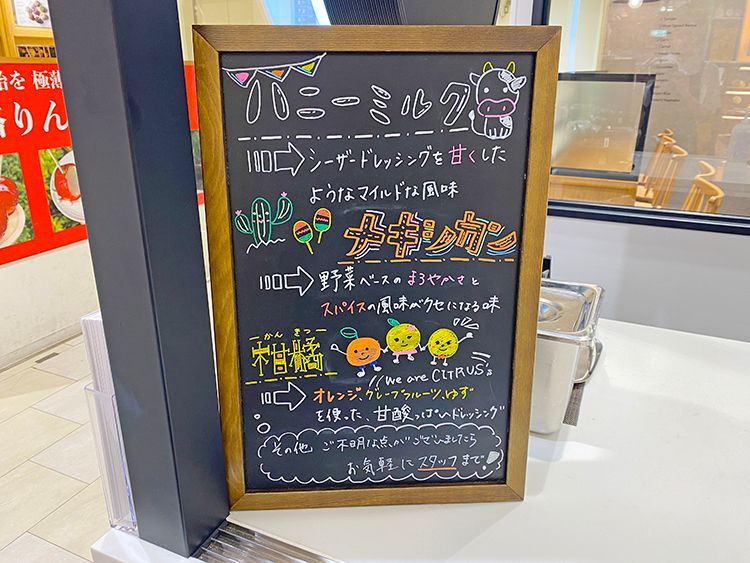 を 極薄
りん
ハニーミルク
シーザードレッシングを甘くした
ようなマイルドな風味
メキシカン
野菜ベースのまろやかさと
スパイスの風味がクセになる味
かんきつ
柑橘
we are CITRUS's
オレンジ、グレープフルーツ、ゆず
を使った、甘酸っぱいドレッシング
その他 ご不明な点がございましたら
お気軽にスタッフまで